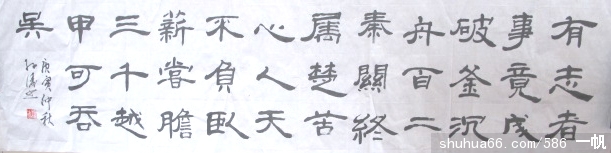 有志者
事竟成
破釜沉
舟百二
秦關終
属楚苦
心人天
不負臥
薪嘗膽
三千越
甲可吞
吳
庚寅仲秋
shuhua66.com/586 一帆